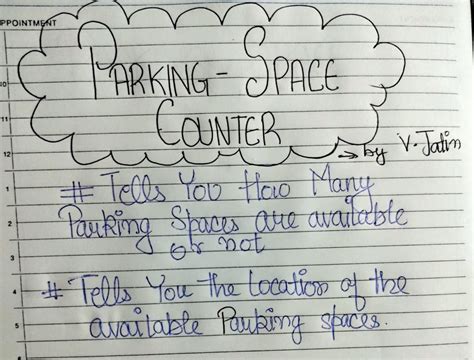 PPOINTMENT
PARKING-SPACE
COUNTER
→ by V. Jatin
# Tells You How Many
Parking Spaces are available
or not
# Tells You the location of the
available Parking spaces.
10
11
12
1
2
3
4
5